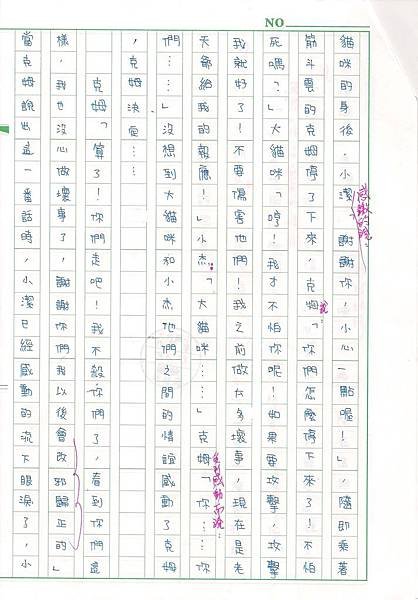 NO.
貓咪的身後,小潔「謝謝你,小心一點喔!」,隨即乘著
感激的說:
筋斗雲的克姆停了下來,克姆說:「你們怎麼停下來了!不怕
死嗎?」大貓咪「哼!我才不怕你呢!如果要攻擊,攻擊
我就好了!不要傷害他們!我之前做太多壞事,現在是老
天爺給我的報應!」小杰:「大貓咪…」克姆「你
受到感動而說:
們…」沒想到大貓咪和小杰他們之間的情誼感動了克姆
,克姆決定…
克姆「算了!你們走吧!我不殺你們了,看到你們這
樣,我也沒心做壞事了,謝謝你們我以後會改邪歸正的」
當克姆說出這一番話時,小潔已經感動的流下眼淚了,小